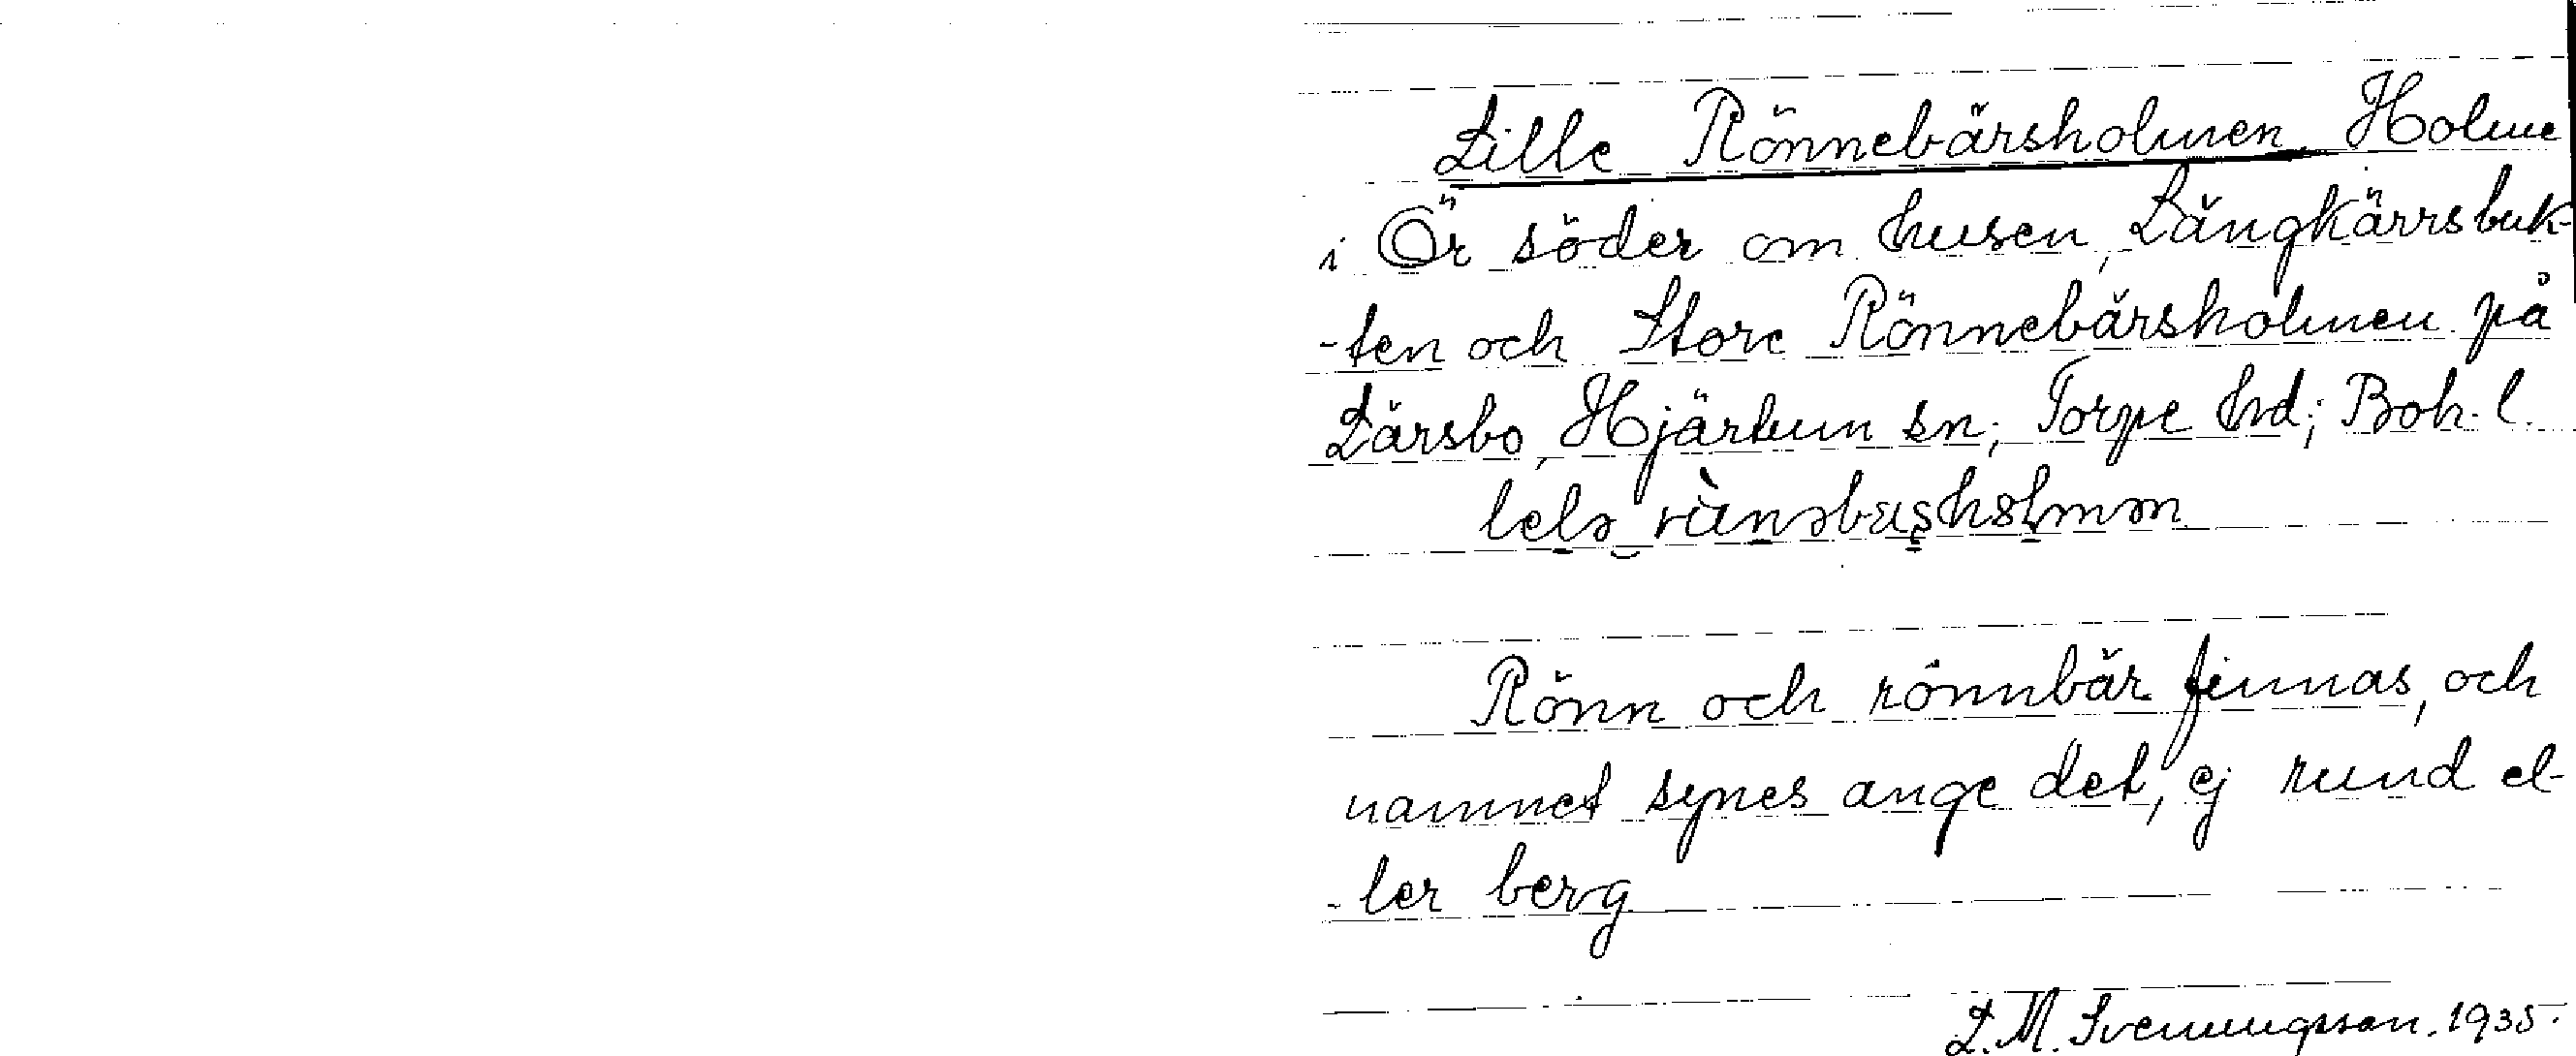 Lille Rönnebärsholmen. Holme
i Ör söder om husen, Långkärrsbuk-
-ten och Store Rönnebärsholmen på
Lärsbo, Hjärtum sn; Torpe hd; Boh. l.
Rönn och rönnbär finnas, och
namnet synes ange det, ej rund el-
-ler berg
L. M. Svenungsson. 1935.